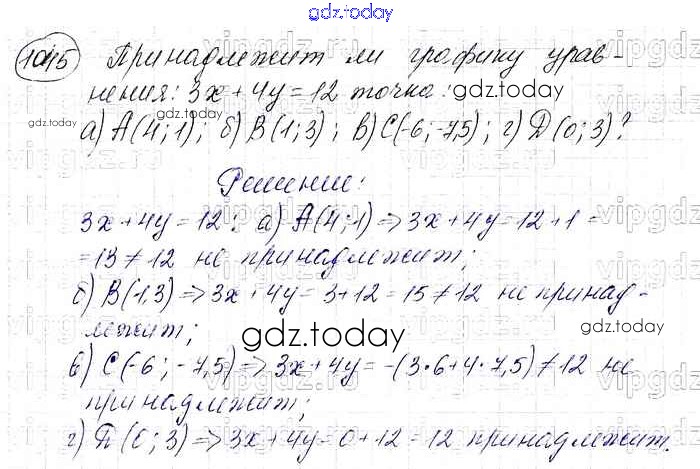 gdz.today
1045 Принадлежит ли графику урав-
нения: 3x + 4y = 12 точка:
gdz.today
gdz.today
а) А(4; 1); б) В(1; 3); в) С(-6; -7,5); г) Д(0; 3)?
Решение:
3x + 4y = 12: а) А(4; 1) => 3x + 4y = 12 + 1 =
= 13 ≠ 12 не принадлежит;
б) В(1,3) => 3x + 4y = 3 + 12 = 15 ≠ 12 не принад-
лежит;
gdz.today
в) С(-6; -7,5) => 3x + 4y = -(3·6 + 4·7,5) ≠ 12 не
принадлежит;
г) Д(0; 3) => 3x + 4y = 0 + 12 = 12 принадлежит.
gdz.today